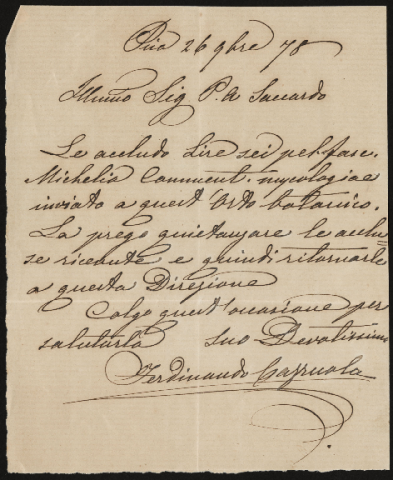 Pisa 26 9bre 78
Illmo Sig P. A Saccardo
Le accludo Lire sei pel fasc.
Michelia Comment. mycologiae
inviato a quest'Orto botanico.
La prego quietanzare le acclu-
se ricevute e quindi ritornarle
a questa Direzione
Colgo quest'occasione per
salutarla suo Devotissimo
Ferdinando Cazzuola